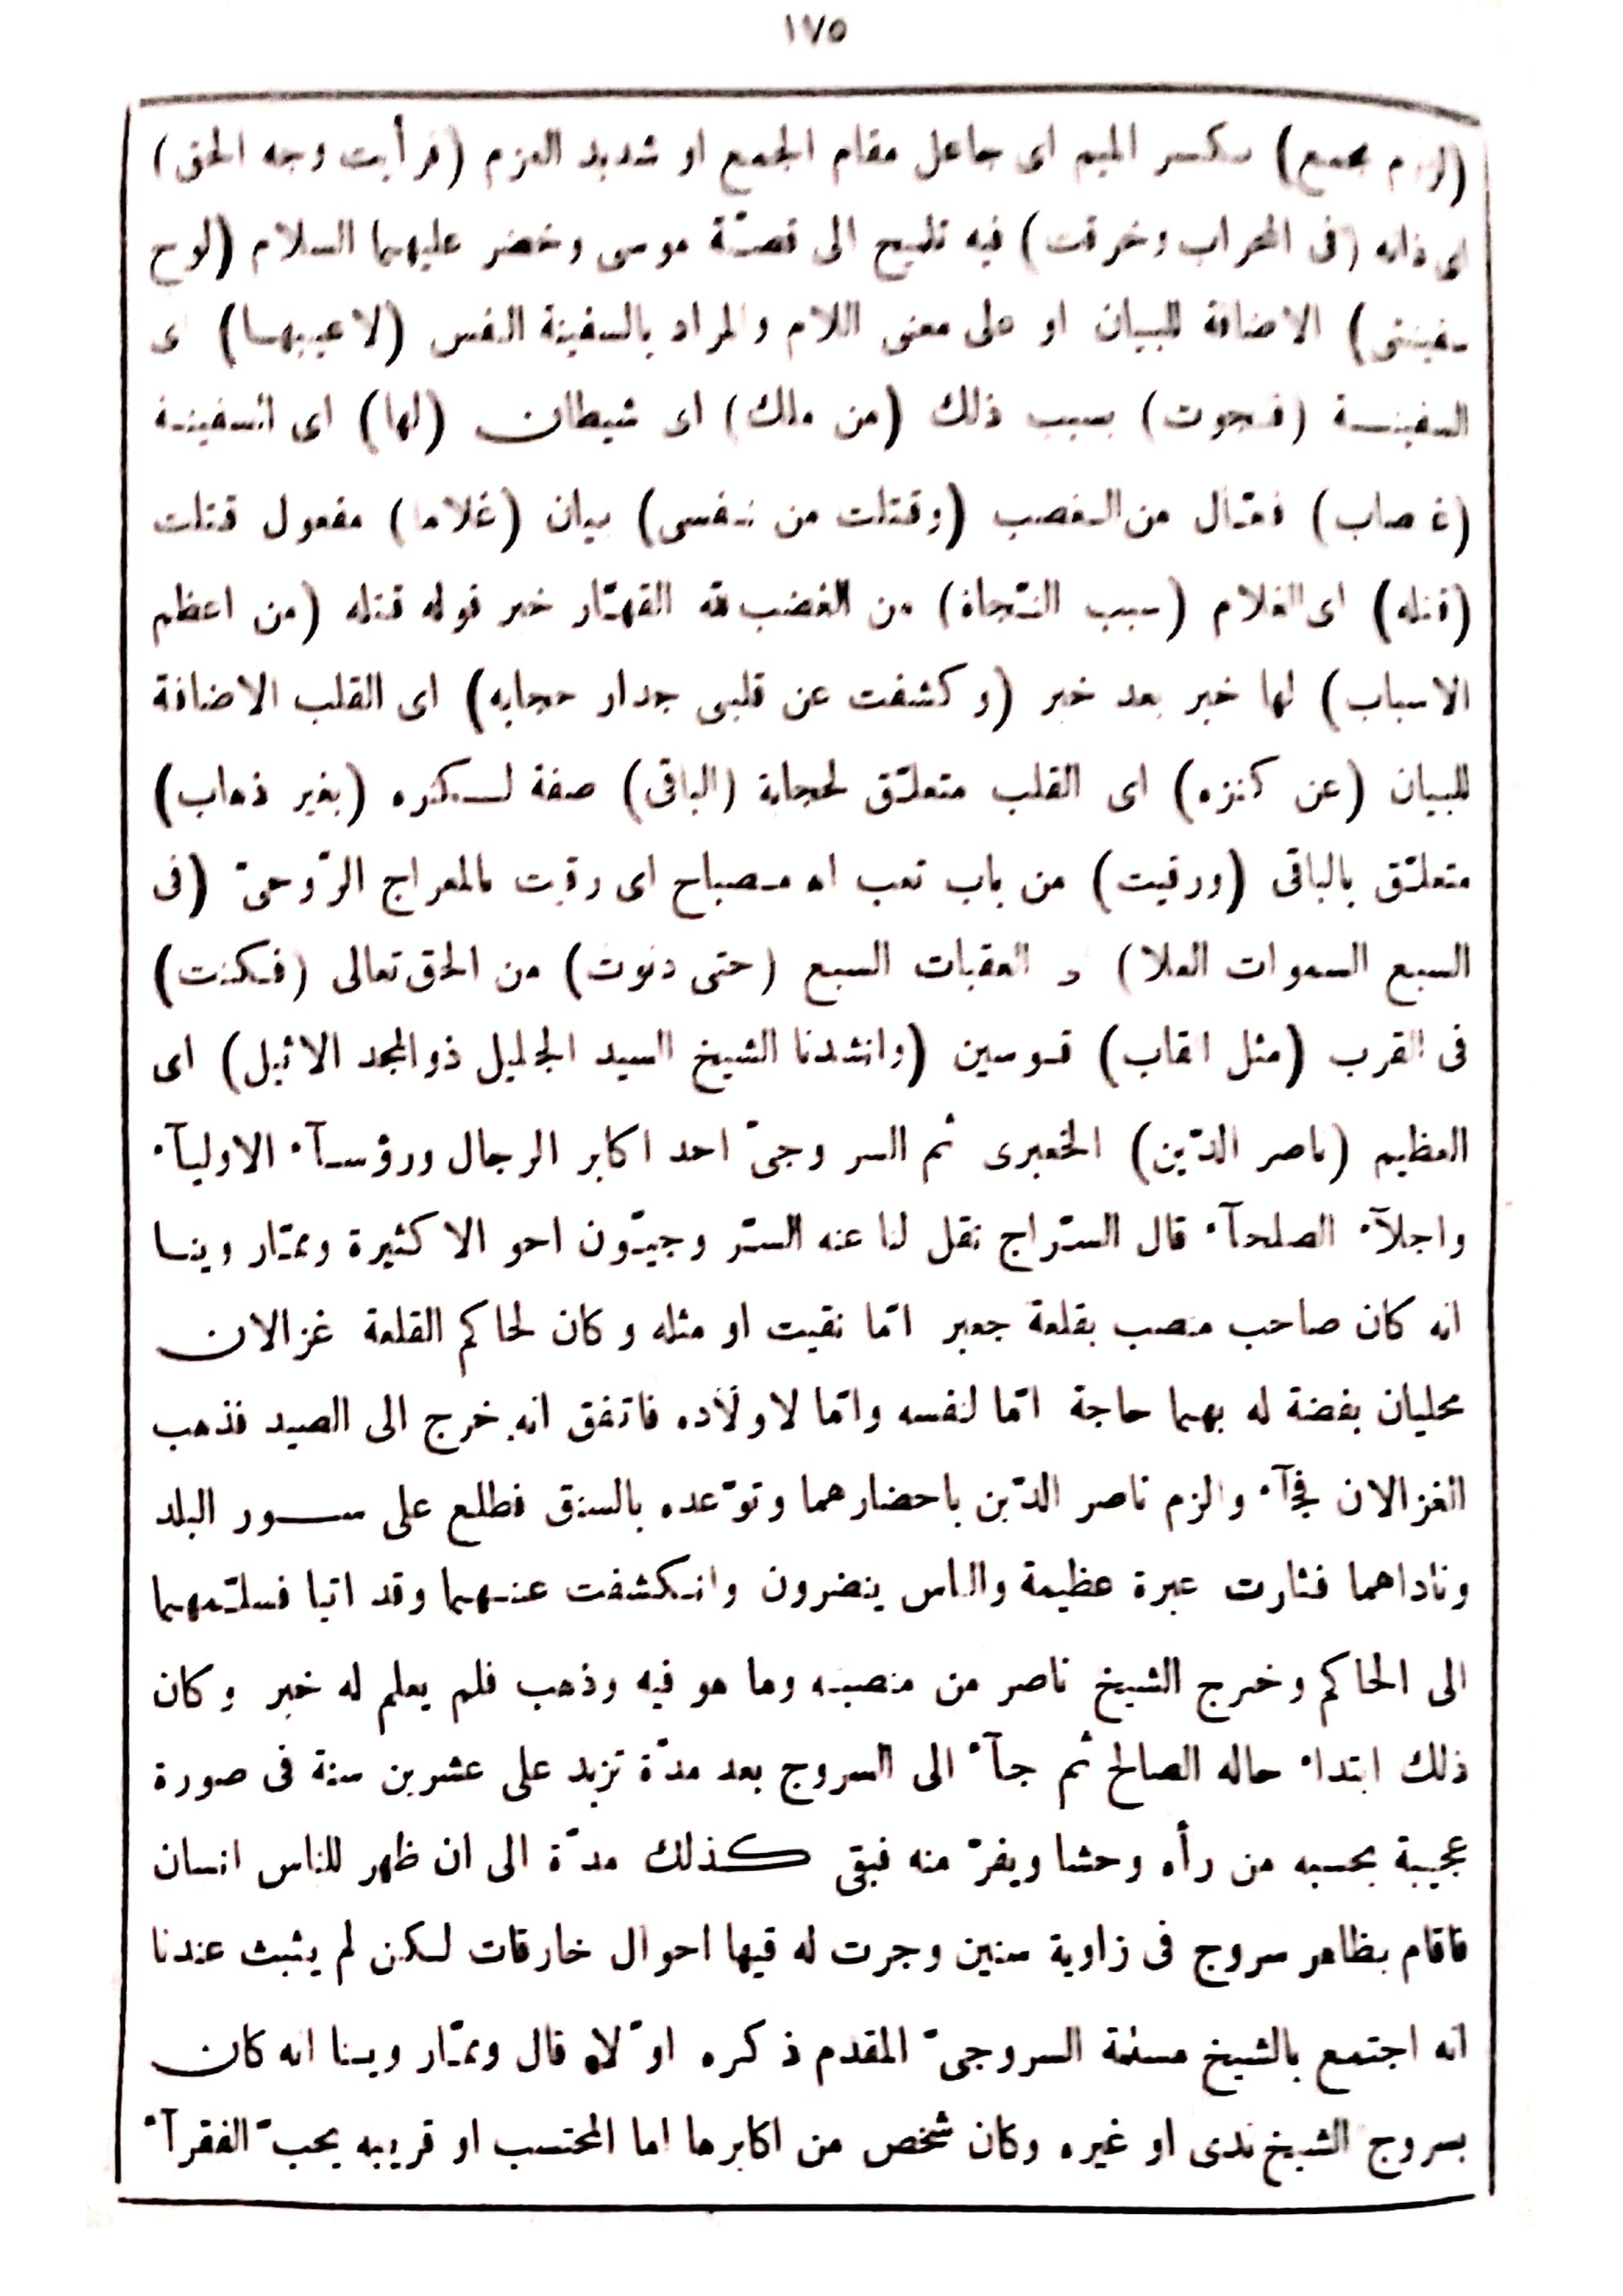 ١٧٥
مجمع) بكسر الميم اى جاعل مقام الجمع او شديد العزم (فرأيت وجه الحق)
اى ذاته (فى المحراب وخرقت) فيه تلميح الى قصّة موسى وخضر عليهما السلام (لوح
سفينتى) الاضافة للبيان او على معنى اللام والمراد بالسفينة النفس (لاعيبها) اى
السفينة (فنجوت) بسبب ذلك (من ملك) اى شيطان (لها) اى السفينة
(غصاب) فعّال من الغصب (وقتلت من نفسى) بيان (غلاما) مفعول قتلت
(قتله) اى الغلام (سبب النّجاة) من الغضب لله القهّار خبر قوله قتله (من اعظم
الاسباب) لها خبر بعد خبر (وكشفت عن قلبى جدار حجابه) اى القلب الاضافة
للبيان (عن كنزه) اى القلب متعلّق لحجابة (الباقى) صفة لكنزه (بغير ذهاب)
متعلّق بالباقى (ورقيت) من باب تعب اه مصباح اى رقيت بالمعراج الرّوحىّ (فى
السبع السموات العلا) و العقبات السبع (حتى دنوت) من الحق تعالى (فكنت)
فى القرب (مثل القاب) قوسين (وانشدنا الشيخ السيد الجليل ذوالمجد الاثيل) اى
العظيم (ناصر الدّين) الجعبرى ثم السروجىّ احد اكابر الرجال ورؤسآء الاوليآء
واجلآء الصلحآء قال السّراج نقل لنا عنه السّروجيّون احوالا كثيرة وممّا روينا
انه كان صاحب منصب بقلعة جعبر امّا نقيت او مثله وكان لحاكم القلعة غزالان
محليان بفضة له بهما حاجة امّا لنفسه وامّا لاولاده فاتفق انه خرج الى الصيد فذهب
الغزالان فجآء والزم ناصر الدّين باحضارهما وتوّعده بالسنق فطلع على سور البلد
وناداهما فثارت عبرة عظيمة والناس ينضرون وانكشفت عنهما وقد اتيا فسلّمهما
الى الحاكم وخرج الشيخ ناصر من منصبه وما هو فيه وذهب فلم يعلم له خبر وكان
ذلك ابتداء حاله الصالح ثم جآء الى السروج بعد مدّة تزيد على عشرين سنة فى صورة
عجيبة يحسبه من رأه وحشا ويفرّ منه فبقى كذلك مدّة الى ان ظهر للناس انسان
فاقام بظاهر سروج فى زاوية سنين وجرت له فيها احوال خارقات لكن لم يثبث عندنا
انه اجتمع بالشيخ مسلمة السروجىّ المقدم ذكره اوّلا قال وممّا روينا انه كان
بسروج الشيخ ندى او غيره وكان شخص من اكابرها اما المحتسب او قريبه يحبّ الفقرآء